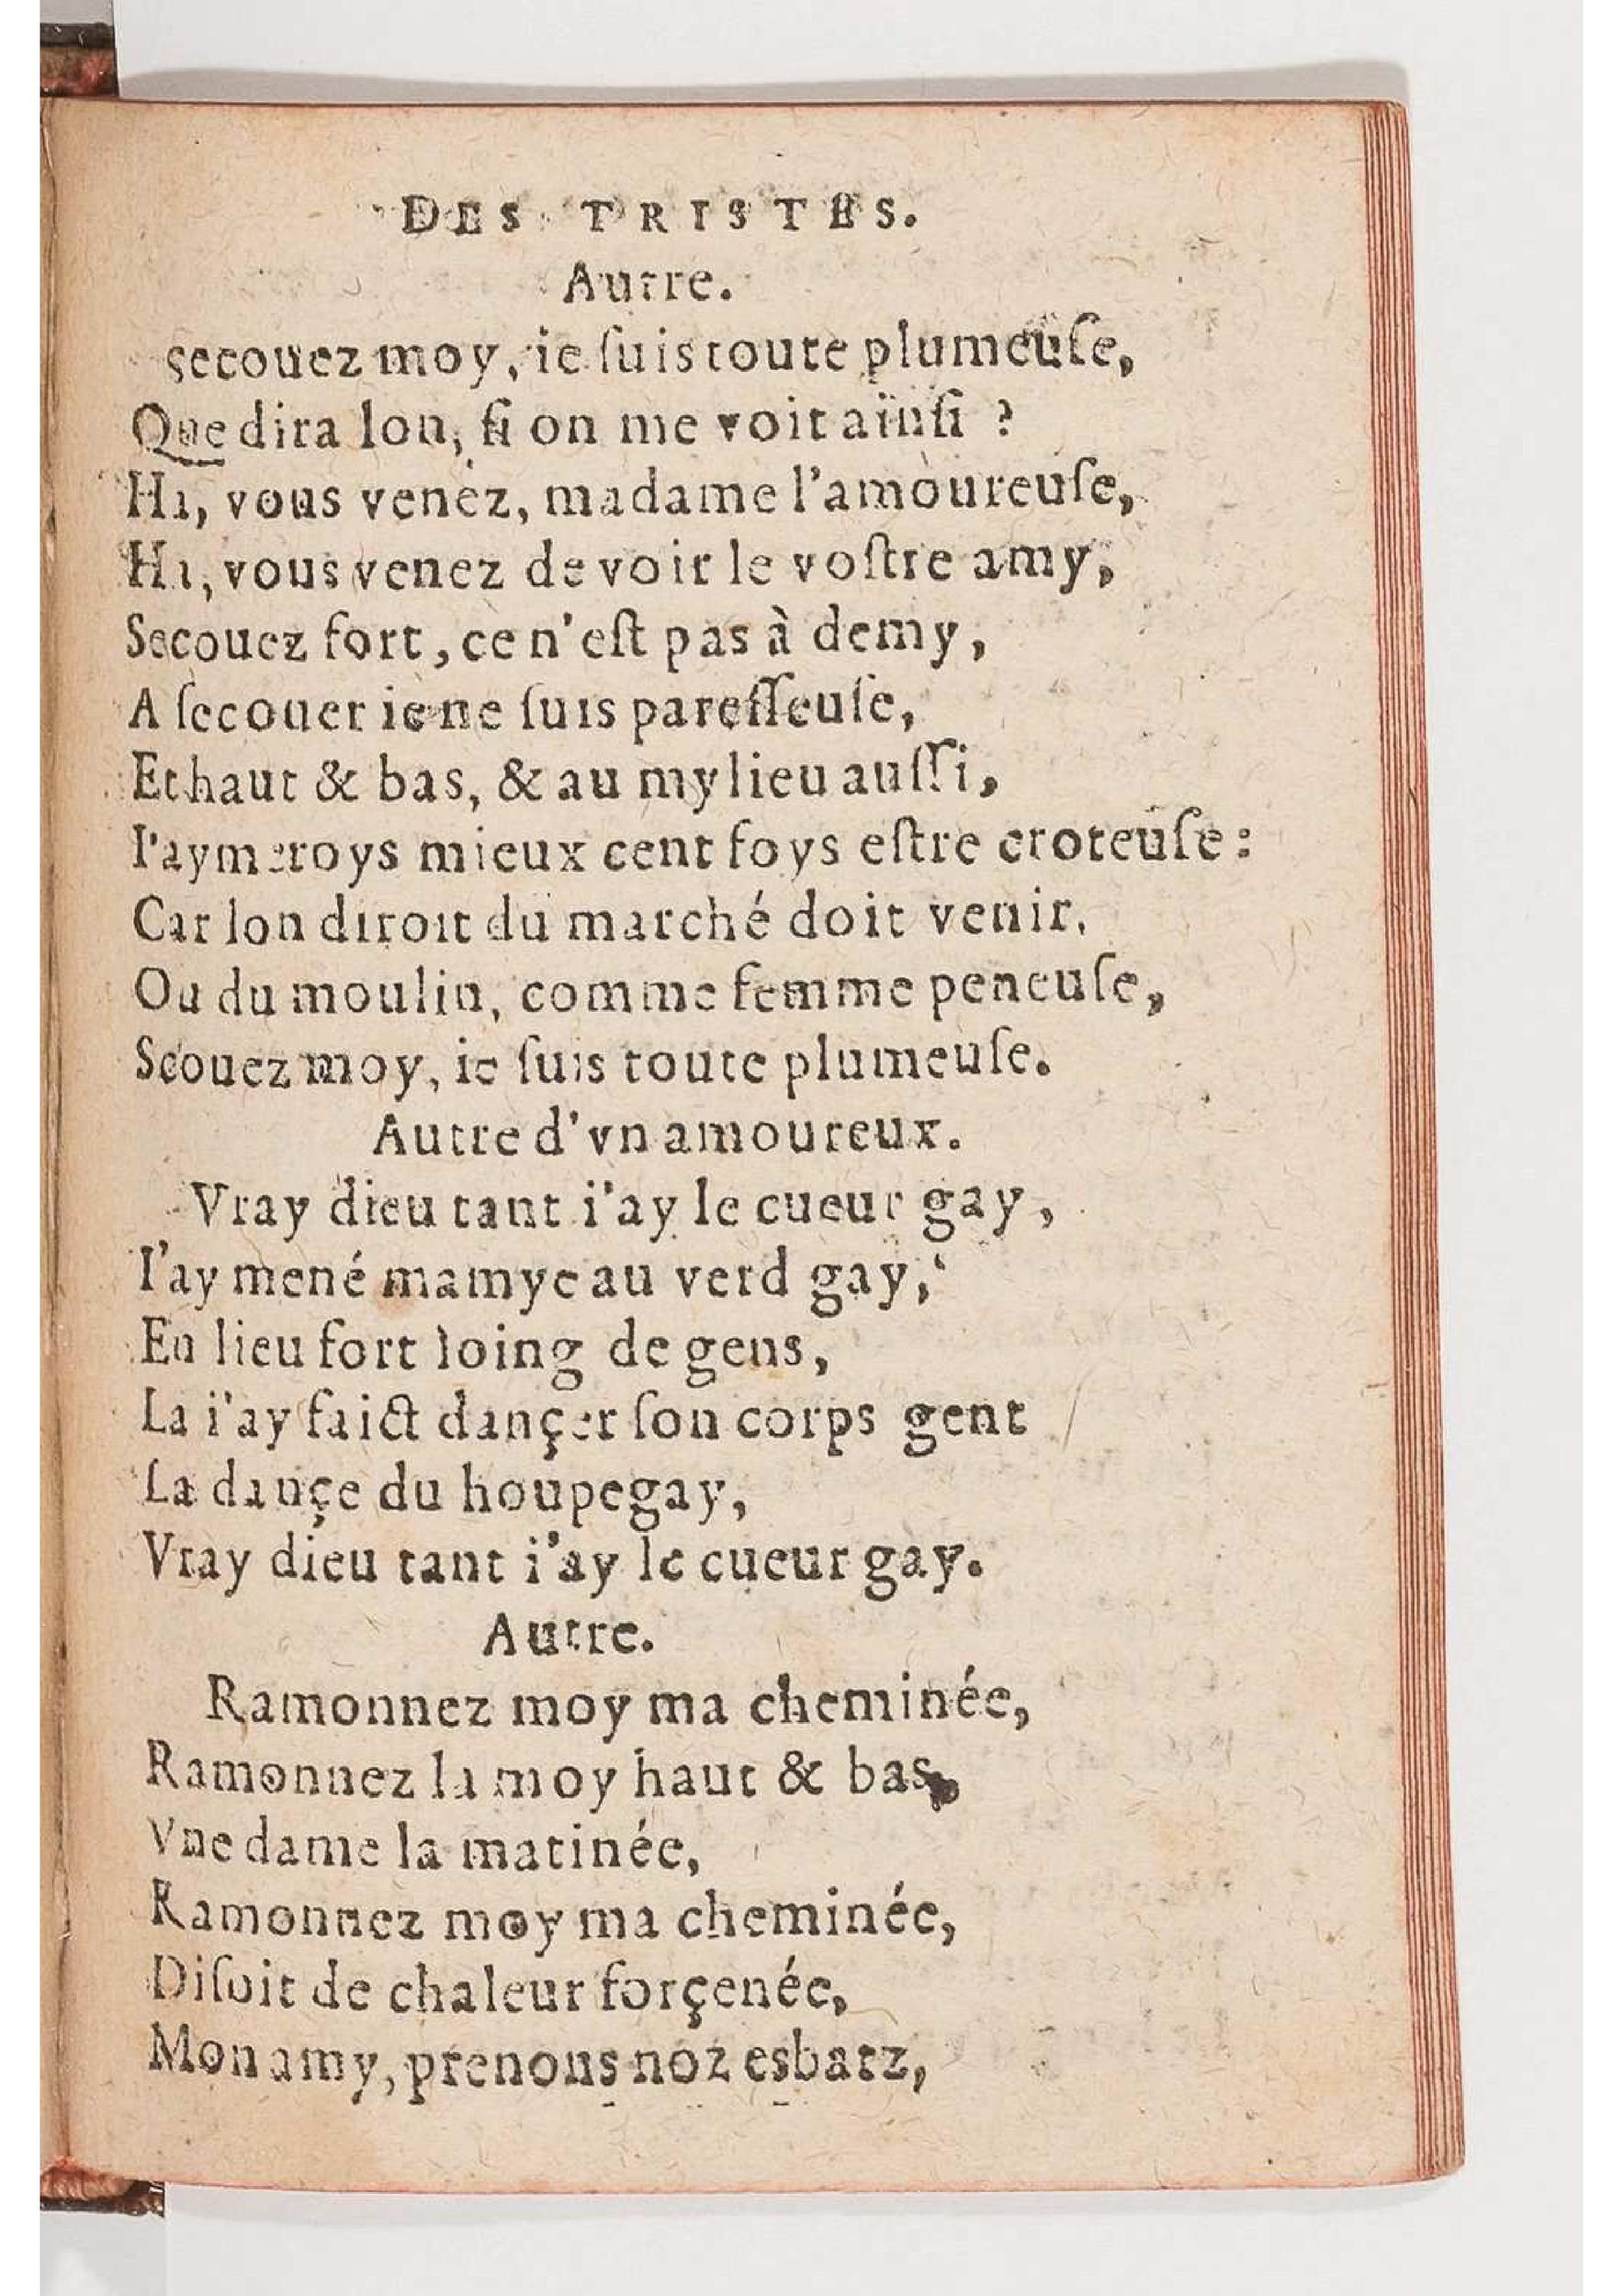 DES TRISTES.
Autre.
Secouez moy, ie ſuis toute plumeuſe,
Que dira lon, ſi on me voit ainſi ?
Hı, vous venez, madame l'amoureuſe,
Hı, vous venez de voir le voſtre amy,
Secouez fort, ce n'eſt pas à demy,
A ſecouer ie ne ſuis pareſſeuſe,
Et haut & bas, & au mylieu auſſi,
I'aymeroys mieux cent foys eſtre croteuſe :
Car lon diroit du marché doit venir.
Ou du moulin, comme femme peneuſe,
Scouez moy, ie ſuis toute plumeuſe.
Autre d'vn amoureux.
Vray dieu tant i'ay le cueur gay,
I'ay mené mamye au verd gay,
En lieu fort loing de gens,
La i'ay faict dançer ſon corps gent
La dançe du houpegay,
Vray dieu tant i'ay le cueur gay.
Autre.
Ramonnez moy ma cheminée,
Ramonnez la moy haut & bas,
Vne dame la matinée,
Ramonnez moy ma cheminée,
Diſoit de chaleur forçenée,
Mon amy, prenons noz esbatz,